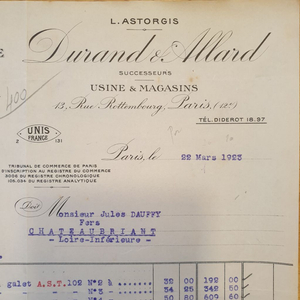 L. ASTORGIS
Durand & Allard
SUCCESSEURS
USINE & MAGASINS
13, Rue Rottembourg, Paris, (12e)
TÉL. DIDEROT 18.97
400
UNIS
FRANCE
2 131
Paris, le 22 Mars 1923
TRIBUNAL DE COMMERCE DE PARIS
D'INSCRIPTION AU REGISTRE DU COMMERCE
DU REGISTRE CHRONOLOGIQUE
105.034 DU REGISTRE ANALYTIQUE
Doit Monsieur Jules DAUFFY
Fers
CHATEAUBRIANT
- Loire-Inférieure -
galet A.S.T. 102 N°2 ½ 32 00 192 00
N°3 54 25 342 50
N°4 50 80 609 60